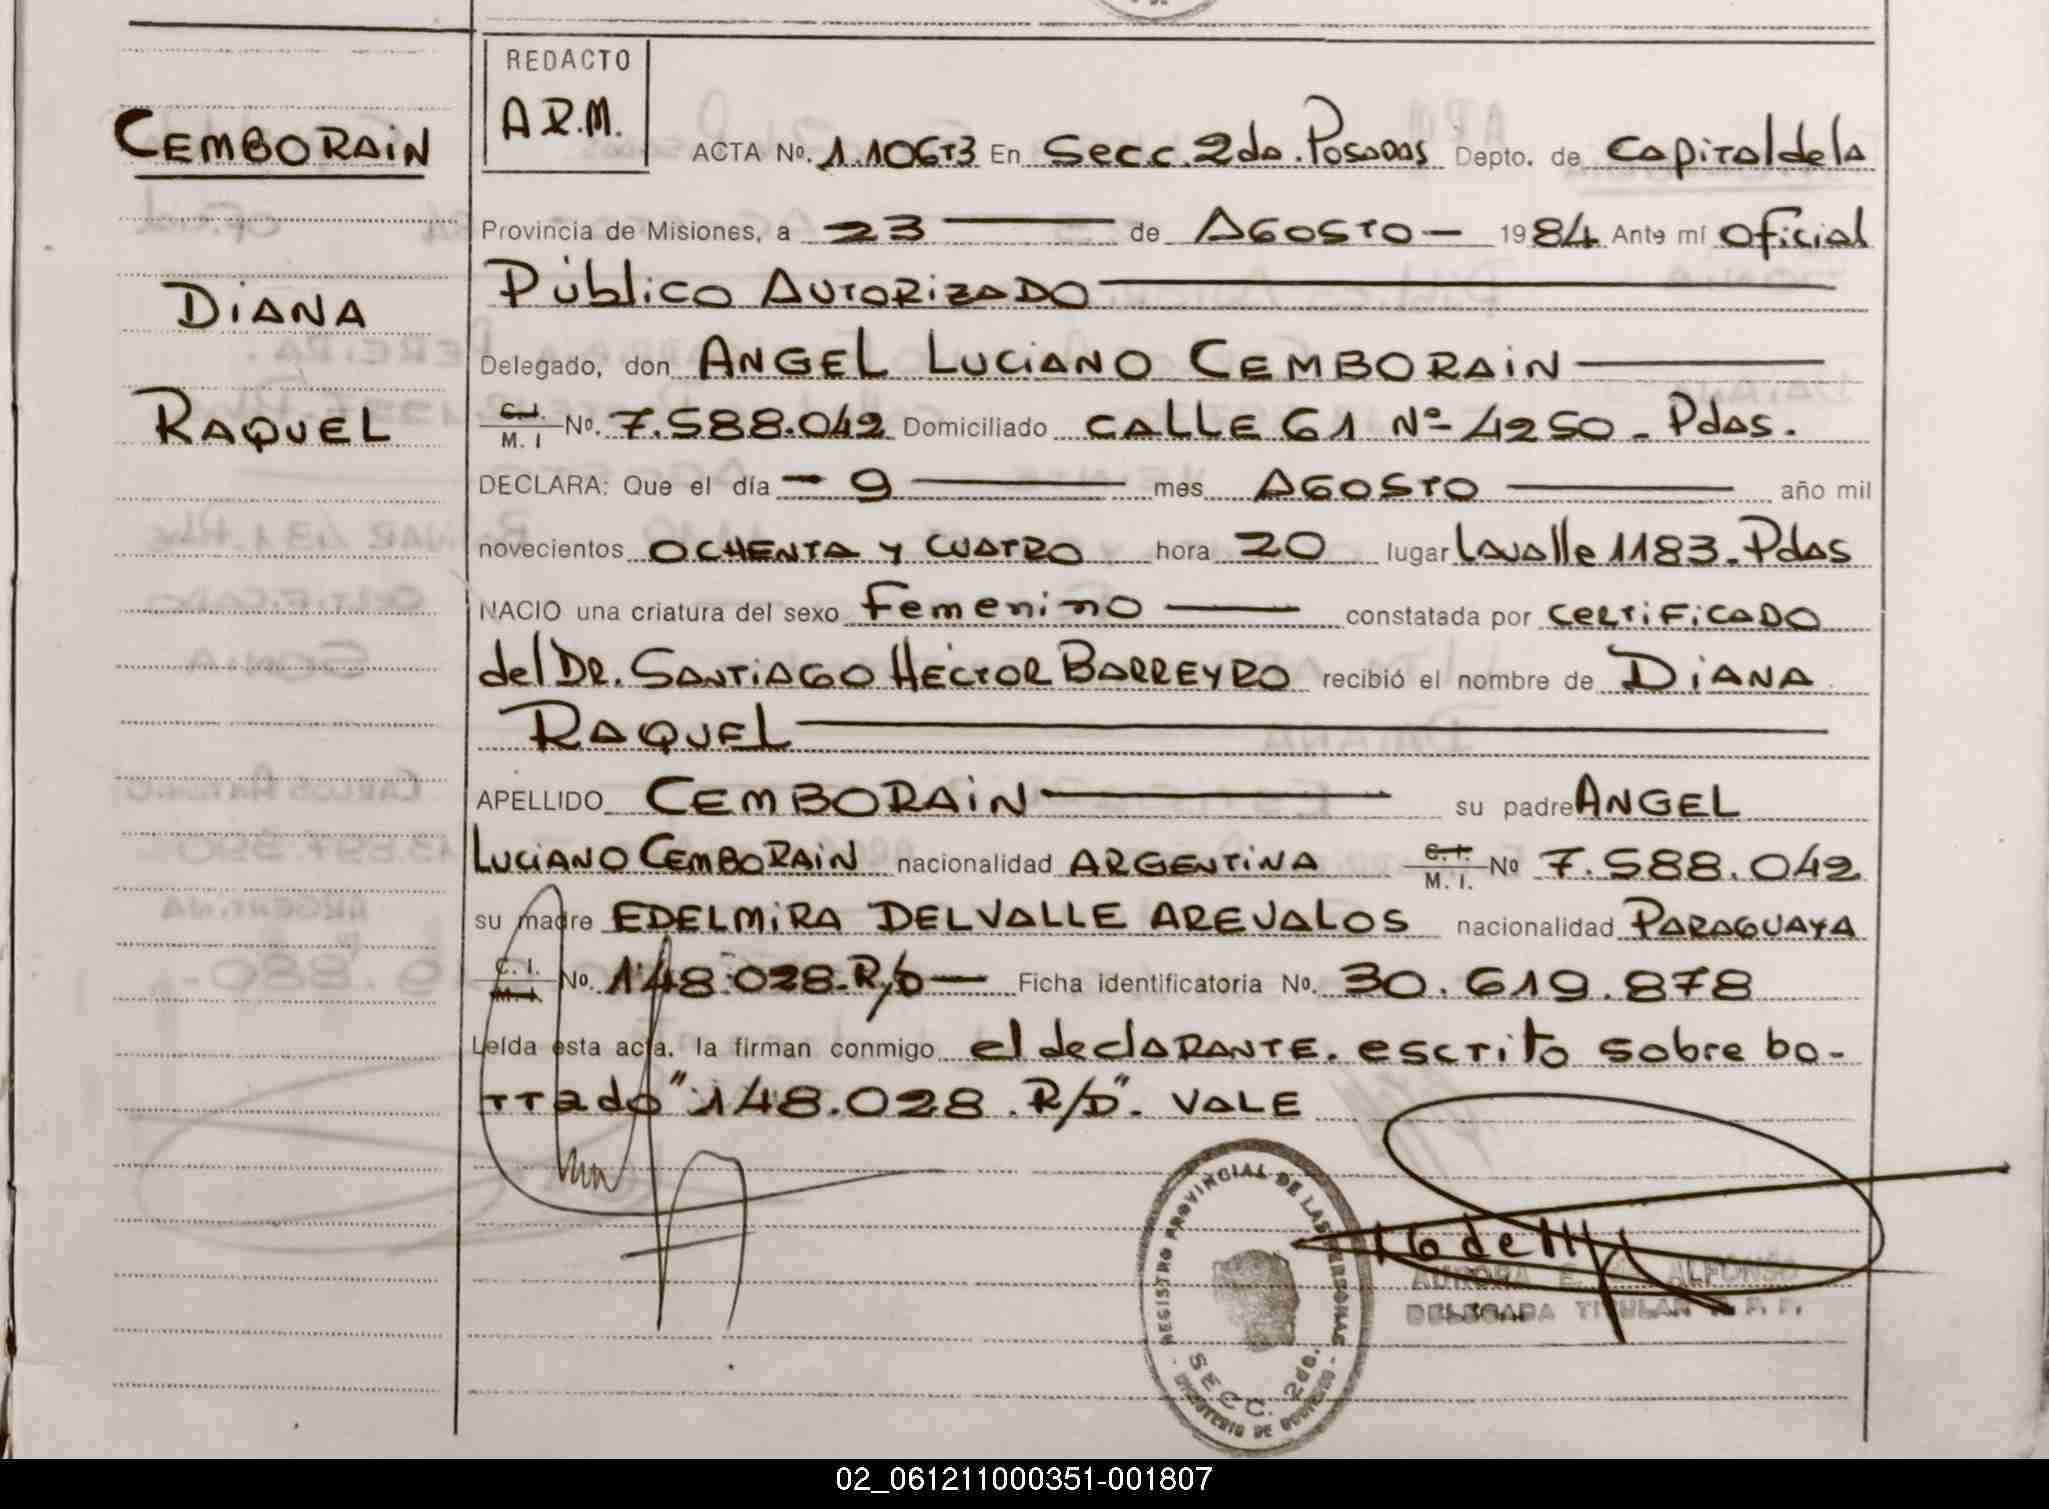 CEMBORAIN
DIANA
RAQUEL
REDACTO
A.R.M.
ACTA Nº. 1.10673 En Secc. 2da. Posadas Depto. de Capital de la
Provincia de Misiones, a 23 de AGOSTO - 1984 Ante mí Oficial
Público Autorizado
Delegado, don ANGEL LUCIANO CEMBORAIN
C.I. M. I Nº. 7.588.042 Domiciliado CALLE 61 Nº 4250 - Pdas.
DECLARA: Que el día - 9 mes AGOSTO año mil
novecientos OCHENTA Y CUATRO hora 20 lugar Lavalle 1183 - Pdas
NACIO una criatura del sexo Femenino constatada por CERTIFICADO
del DR. SANTIAGO HECTOR BARREYRO recibió el nombre de DIANA
RAQUEL
APELLIDO CEMBORAIN su padre ANGEL
LUCIANO CEMBORAIN nacionalidad ARGENTINA C.I. M. I. Nº 7.588.042
su madre EDELMIRA DELVALLE AREVALOS nacionalidad PARAGUAYA
C. I. M.I. Nº. 148.028.R/D - Ficha identificatoria Nº. 30.619.878
Leída esta acta, la firman conmigo el declarante. escrito sobre bo-
rrado "148.028.R/D". VALE
REGISTRO PROVINCIAL DE LAS PERSONAS
SECC. 2da.
MINISTERIO DE GOBIERNO
AURORA E. ALFONSO
DELEGADA TITULAR
02_061211000351-001807